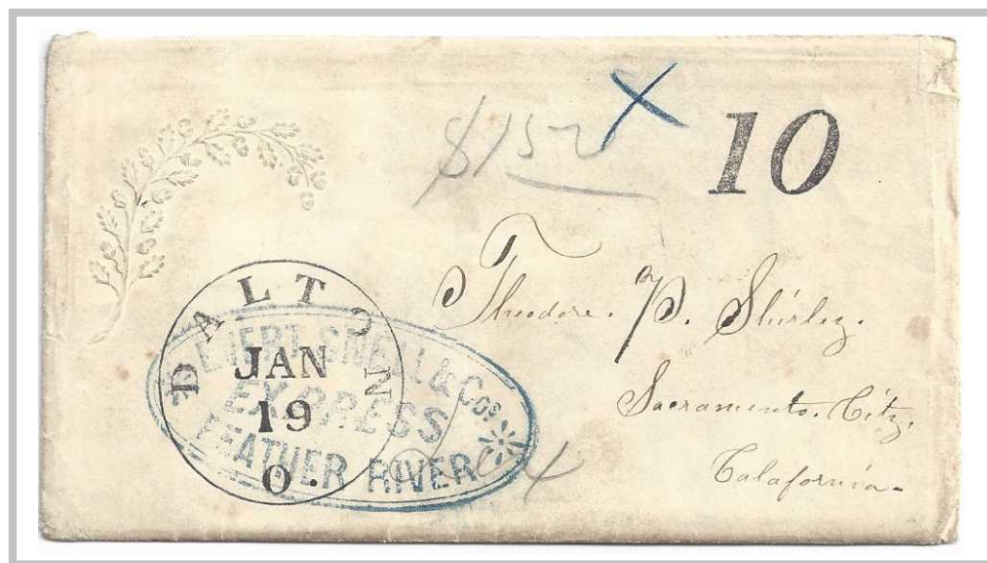 $1 50
X
10
Theodore. P. Shirley.
Sacramento. City.
Calafornia.
DALTON
JAN
19
O.
EVERTS SNELL & Co's
EXPRESS
FEATHER RIVER